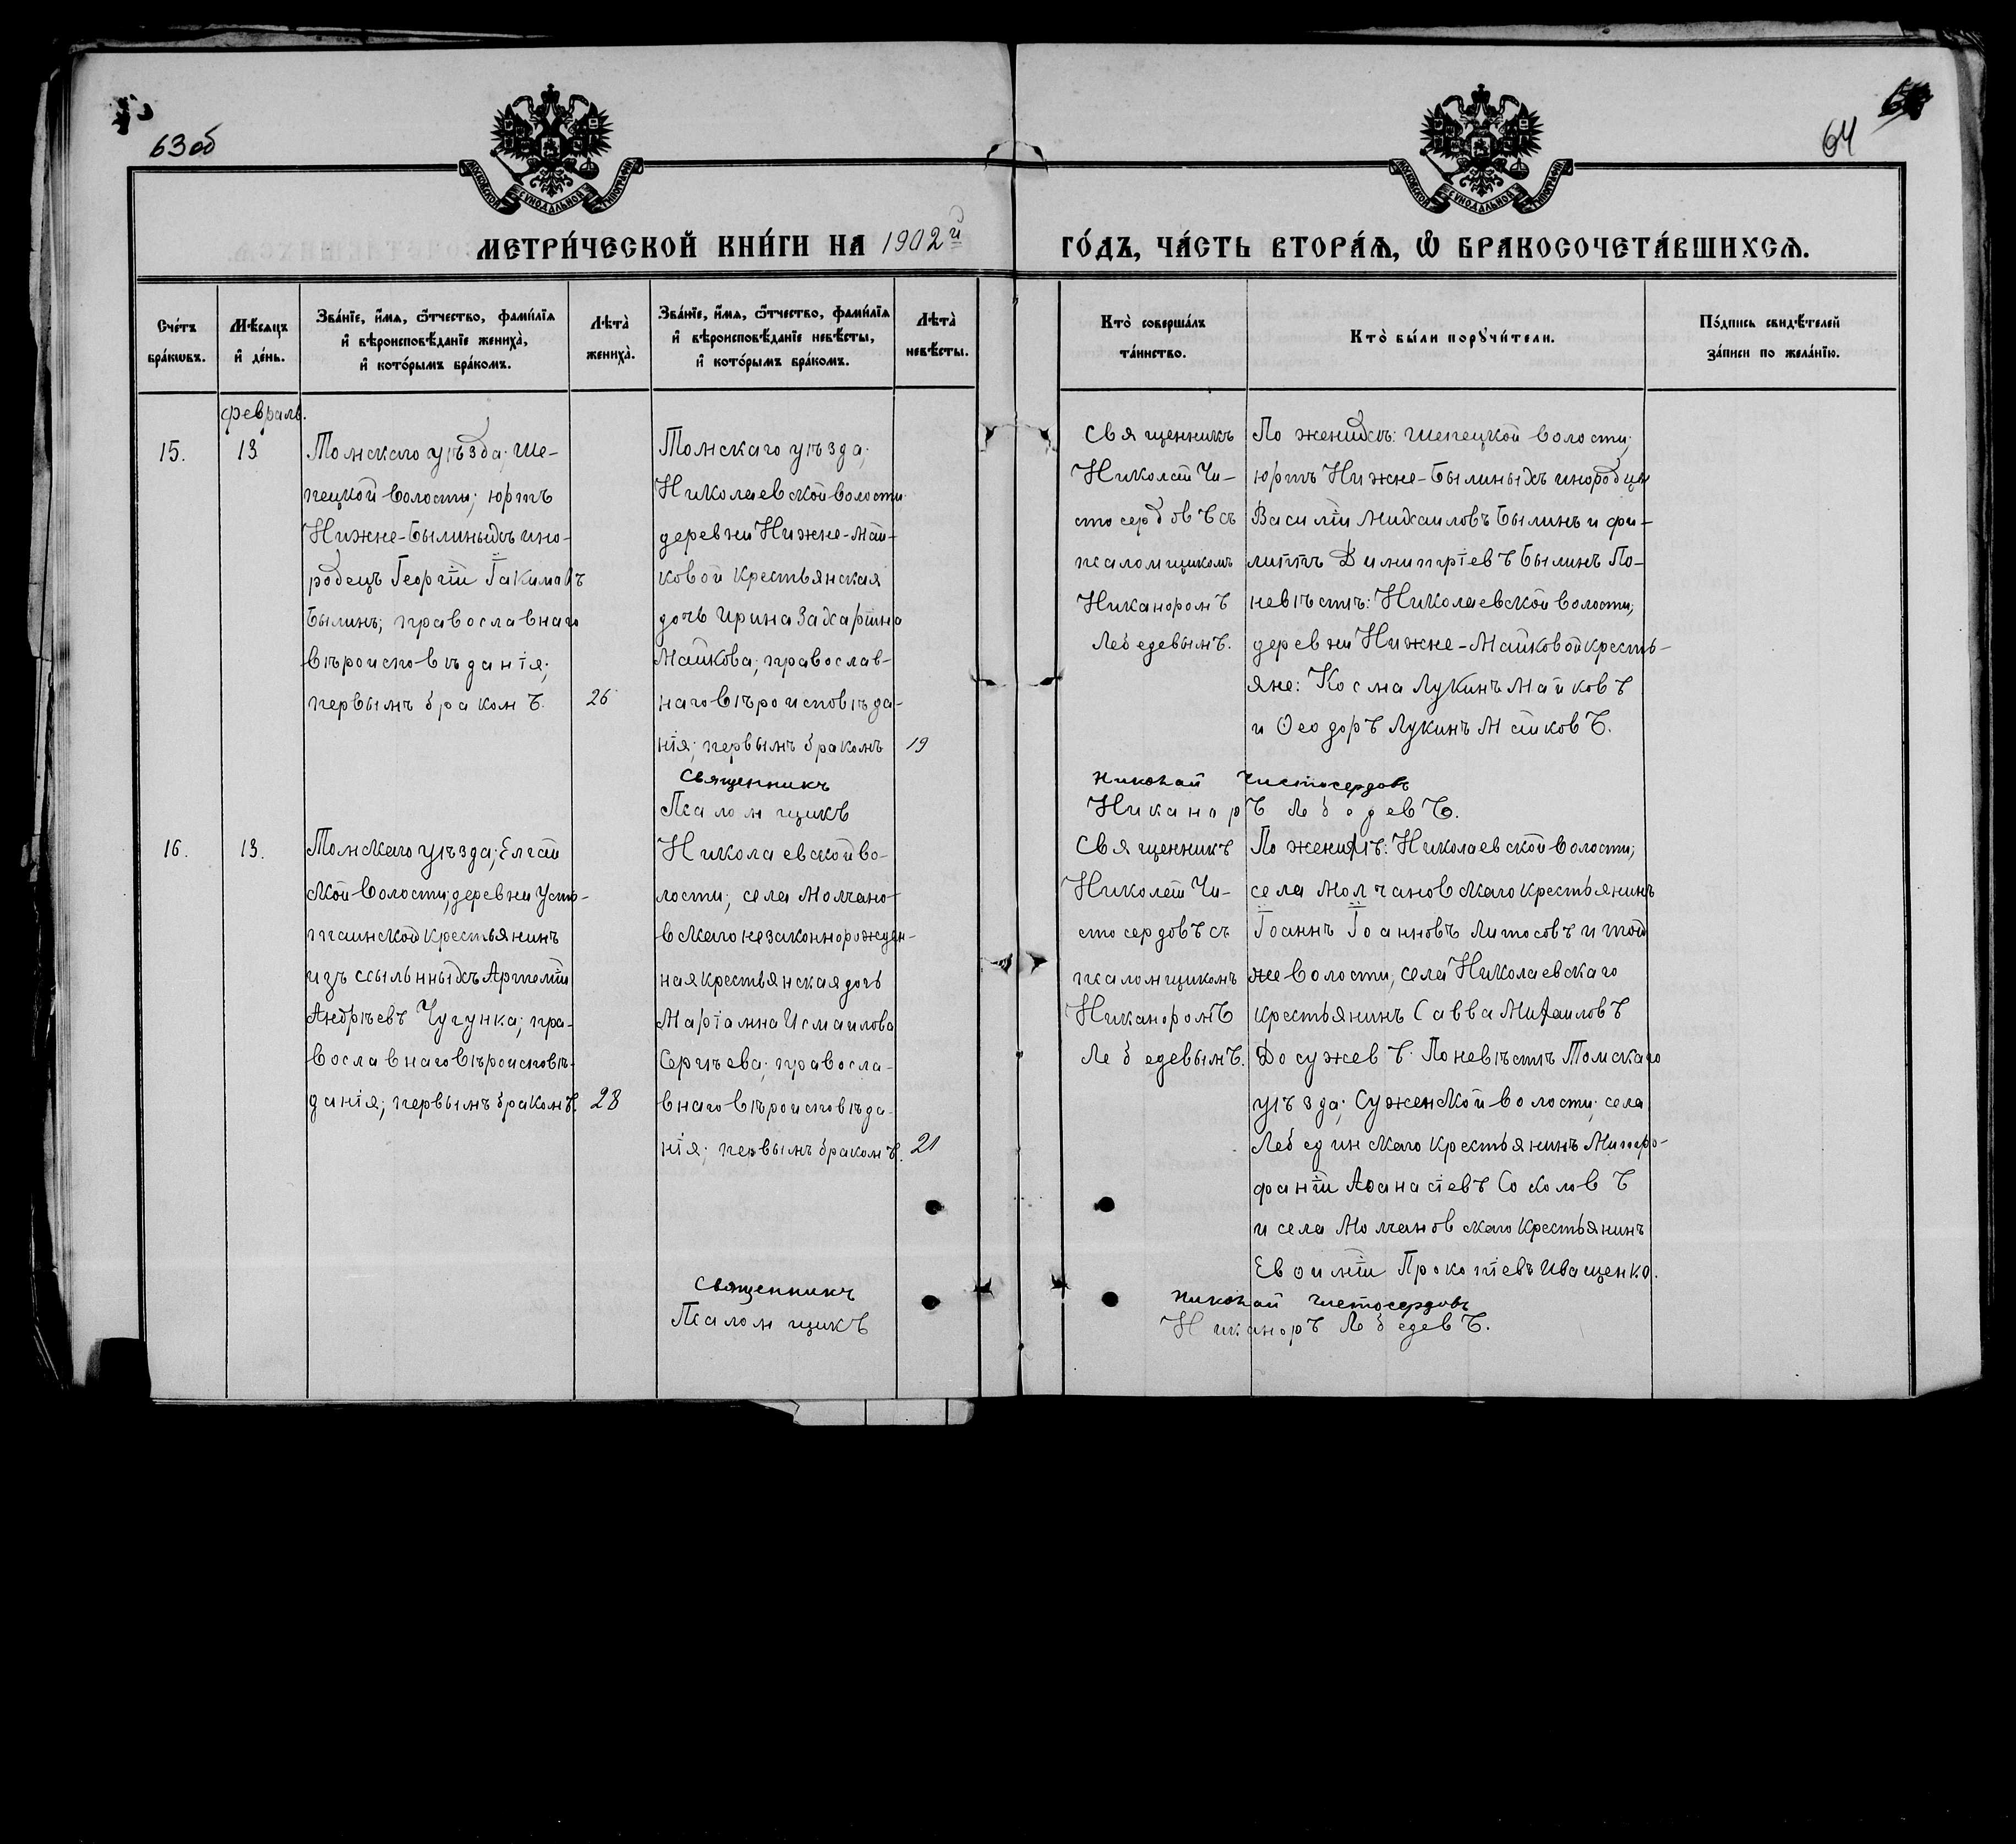 63об
64
МОСКОВСКОЙ СУНОДАЛЬНОЙ ТИПОГРАФІИ
МОСКОВСКОЙ СУНОДАЛЬНОЙ ТИПОГРАФІИ
МЕТРИ́ЧЕСКОЙ КНИ́ГИ НА 1902й
ГО́ДЪ, ЧА́СТЬ ВТОРА́Ѧ, Ѽ БРАКОСОЧЕТА́ВШИХСѦ.
Сче́тъ
бра́кѡвъ.
Мѣ́сяцъ
и҆ де́нь.
Зва́нїе, и҆́мя, ѻ҆́тчество, фами́лїя
и҆ вѣроисповѣ́данїе жениха̀,
и҆ кото́рымъ бра́комъ.
Лѣта̀
жениха̀.
Зва́нїе, и҆́мя, ѻ҆́тчество, фами́лїя
и҆ вѣроисповѣ́данїе невѣ́сты,
и҆ кото́рымъ бра́комъ.
Лѣта̀
невѣ́сты.
Кто̀ соверша́лъ
та́инство.
Кто̀ бы́ли порꙋчи́тели.
По́дпись свидѣ́телей
за́писи по жела́нїю.
февраль.
15.
13
Томскаго уѣзда; Ше-
пецкой волости; юртъ
Нижне-Былиныхъ ино-
родецъ Георгій Іакимовъ
Былинъ; православнаго
вѣроисповѣданія;
первымъ бракомъ.
26
Томскаго уѣзда;
Николаевской волости
деревни Нижне-Май-
ковой крестьянская
дочь Ирина Захаріина
Майкова; православ-
наго вѣроисповѣда-
нія; первымъ бракомъ
19
Священникъ
Николай Чи-
стосердовъ съ
псаломщикомъ
Никаноромъ
Лебедевымъ.
По женихѣ: Шепецкой волости;
юртъ Нижне-Былиныхъ инородцы
Василій Михаиловъ Былинъ и Фи-
липпъ Димитріевъ Былинъ По-
невѣстѣ: Николаевской волости;
деревни Нижне-Майковой кресть-
яне: Косма Лукинъ Майковъ
и Ѳеодоръ Лукинъ Майковъ.
Священникъ Николай Чистосердовъ
Псаломщикъ Никаноръ Лебедевъ.
16.
13.
Томскаго уѣзда; Елгай
ской волости; деревни Усть-
крестьянинъ
изъ ссыльныхъ Артемій
Андреевъ Чугунка; пра-
вославнаго вѣроисповѣ-
данія; первымъ бракомъ.
28
Николаевской во-
лости; села Молчано-
вскаго незаконнорожден-
ная крестьянская дочь
Маріамна Исмаилова
Сергѣева; правосла-
внаго вѣроисповѣда-
нія; первымъ бракомъ.
21
Священникъ
Николай Чи-
стосердовъ съ
псаломщикомъ
Никаноромъ
Лебедевымъ.
По женихѣ: Николаевской волости;
села Молчановскаго крестьянинъ
Іоаннъ Іоанновъ Литосовъ и той
же волости, села Николаевскаго
крестьянинъ Савва Михаиловъ
Досужевъ. По невѣстѣ Томскаго
уѣзда; Суженской волости; села
Лебединскаго крестьянинъ Митро-
фаній Аѳанасіевъ Соколовъ
и села Молчановскаго крестьянинъ
Евѳимій Прокопіевъ Иващенко.
Священникъ Николай Чистосердовъ
Псаломщикъ Никаноръ Лебедевъ.